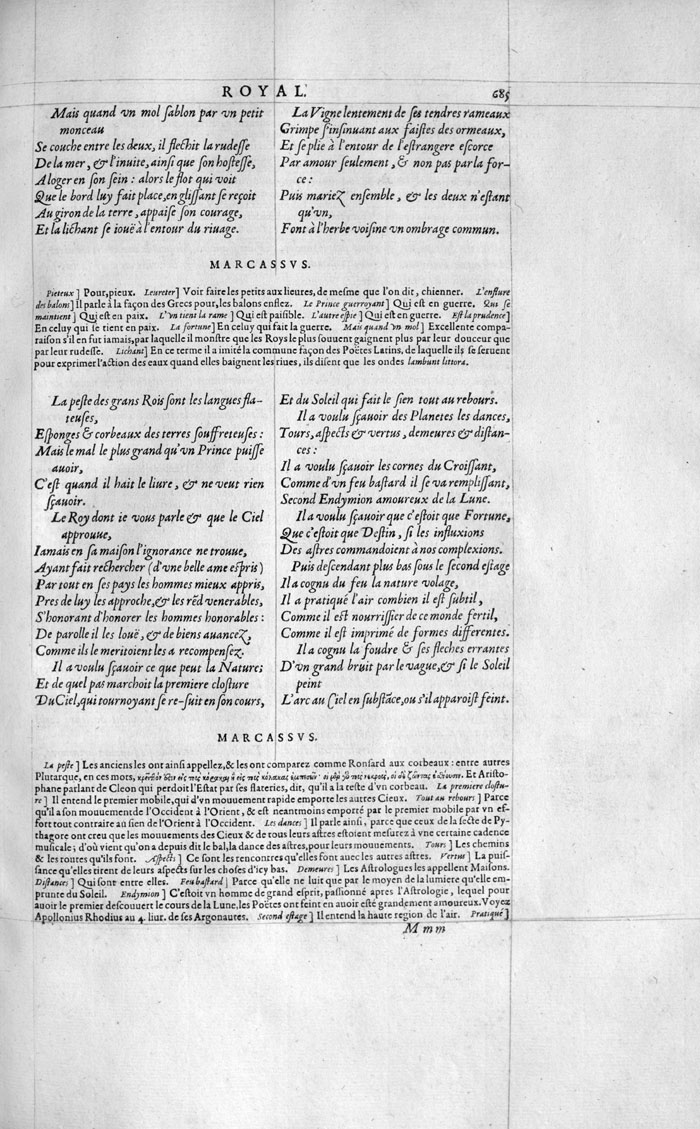 ROYAL.
685
Mais quand vn mol sablon par vn petit
monceau
Se couche entre les deux, il flechit la rudesse
De la mer, & l'inuite, ainsi que son hostesse,
A loger en son sein : alors le flot qui voit
Que le bord luy fait place, en glissant se reçoit
Au giron de la terre, appaise son courage,
Et la lichant se iouë à l'entour du riuage.
La Vigne lentement de ses tendres rameaux
Grimpe s'insinuant aux faistes des ormeaux,
Et se plie à l'entour de l'estrangere escorce
Par amour seulement, & non pas par la for-
ce :
Puis mariez ensemble, & les deux n'estant
qu'vn,
Font à l'herbe voisine vn ombrage commun.
MARCASSVS.
Pieteux ] Pour, pieux. Leureter] Voir faire les petits aux lieures, de mesme que l'on dit, chienner. L'enflure
des balons] Il parle à la façon des Grecs pour, les balons enflez. Le Prince guerroyant] Qui est en guerre. Qui se
maintient ] Qui est en paix. L'vn tient la rame ] Qui est paisible. L'autre espie] Qui est en guerre. Est la prudence]
En celuy qui se tient en paix. La fortune] En celuy qui fait la guerre. Mais quand vn mol ] Excellente compa-
raison s'il en fut iamais, par laquelle il monstre que les Roys le plus souuent gaignent plus par leur douceur que
par leur rudesse. Lichant] En ce terme il a imité la commune façon des Poëtes Latins, de laquelle ils se seruent
pour exprimer l'action des eaux quand elles baignent les riues, ils disent que les ondes lambunt littora.
La peste des grans Rois sont les langues fla-
teuses,
Esponges & corbeaux des terres souffreteuses :
Mais le mal le plus grand qu'vn Prince puisse
auoir,
C'est quand il hait le liure, & ne veut rien
sçauoir.
Le Roy dont ie vous parle & que le Ciel
approuue,
Iamais en sa maison l'ignorance ne trouue,
Ayant fait rechercher (d'vne belle ame espris)
Par tout en ses pays les hommes mieux appris,
Pres de luy les approche, & les rēd venerables,
S'honorant d'honorer les hommes honorables :
De parolle il les louë, & de biens auancez,
Comme ils le meritoient les a recompensez.
Il a voulu sçauoir ce que peut la Nature;
Et de quel pas marchoit la premiere closture
Du Ciel, qui tournoyant se re-suit en son cours,
Et du Soleil qui fait le sien tout au rebours.
Il a voulu sçauoir des Planetes les dances,
Tours, aspects & vertus, demeures & distan-
ces :
Il a voulu sçauoir les cornes du Croissant,
Comme d'vn feu bastard il se va remplissant,
Second Endymion amoureux de la Lune.
Il a voulu sçauoir que c'estoit que Fortune,
Que c'estoit que Destin, si les influxions
Des astres commandoient à nos complexions.
Puis descendant plus bas sous le second estage
Il a cognu du feu la nature volage,
Il a pratiqué l'air combien il est subtil,
Comme il est nourrissier de ce monde fertil,
Comme il est imprimé de formes differentes.
Il a cognu la foudre & ses fleches errantes
D'vn grand bruit par le vague, & si le Soleil
peint
L'arc au Ciel en substāce, ou s'il apparoist feint.
MARCASSVS.
La peste ] Les anciens les ont ainsi appellez, & les ont comparez comme Ronsard aux corbeaux : entre autres
Plutarque, en ces mots, Et Aristo-
phane parlant de Cleon qui perdoit l'Estat par ses flateries, dit, qu'il a la teste d'vn corbeau. La premiere clostu-
re ] Il entend le premier mobile, qui d'vn mouuement rapide emporte les autres Cieux. Tout au rebours ] Parce
qu'il a son mouuement de l'Occident à l'Orient, & est neantmoins emporté par le premier mobile par vn ef-
fort tout contraire au sien de l'Orient à l'Occident. Les dances ] Il parle ainsi, parce que ceux de la secte de Py-
thagore ont creu que les mouuements des Cieux & de tous leurs astres estoient mesurez à vne certaine cadence
musicale; d'où vient qu'on a depuis dit le bal, la dance des astres, pour leurs mouuements. Tours ] Les chemins
& les routes qu'ils font. Aspects ] Ce sont les rencontres qu'elles font auec les autres astres. Vertus ] La puis-
sance qu'elles tirent de leurs aspects sur les choses d'icy bas. Demeures ] Les Astrologues les appellent Maisons.
Distances ] Qui sont entre elles. Feu bastard ] Parce qu'elle ne luit que par le moyen de la lumiere qu'elle em-
prunte du Soleil. Endymion ] C'estoit vn homme de grand esprit, passionné apres l'Astrologie, lequel pour
auoir le premier descouuert le cours de la Lune, les Poëtes ont feint en auoir esté grandement amoureux. Voyez
Apollonius Rhodius au 4. liur. de ses Argonautes. Second estage ] Il entend la haute region de l'air. Pratiqué ]
Mmm